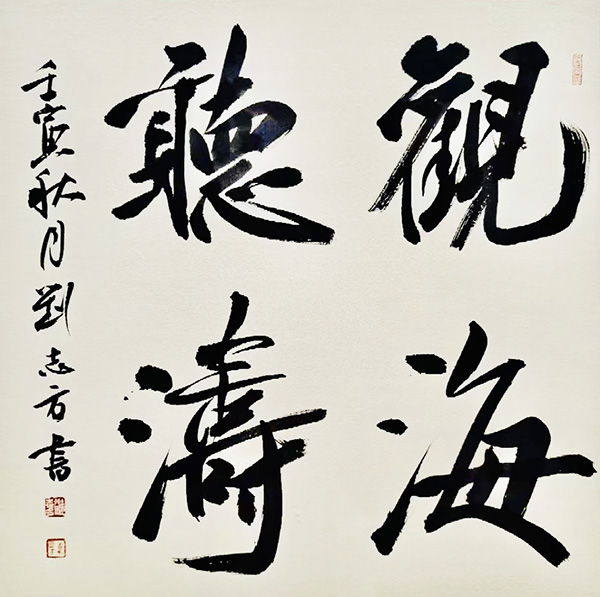 觀海
聽濤
壬寅秋月劉志方書